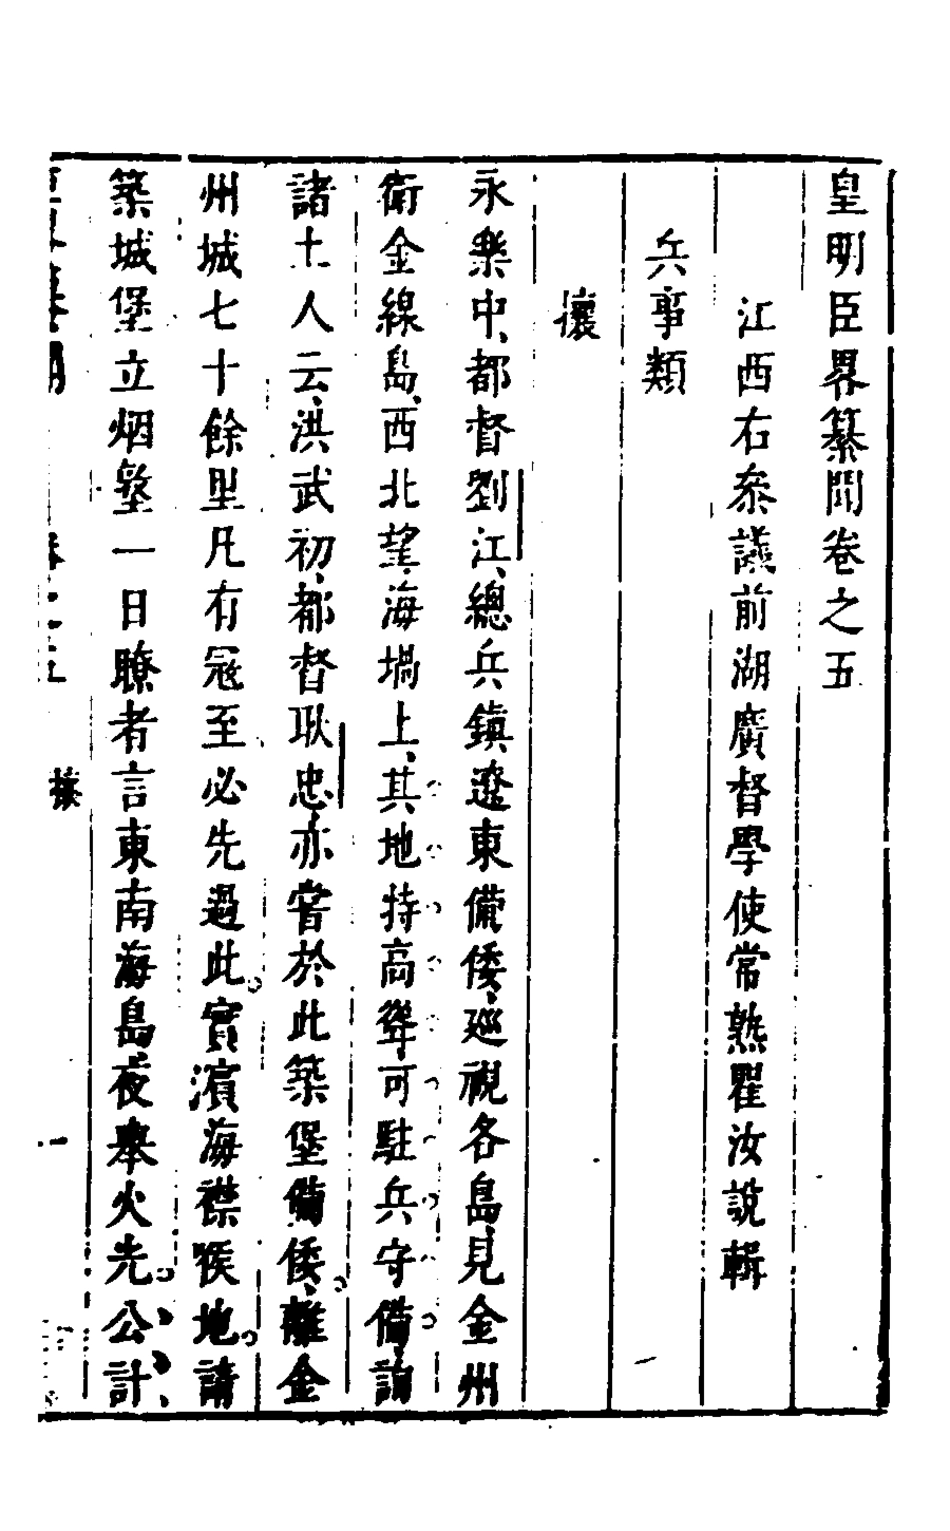 皇明臣畧纂聞卷之五
江西右叅議前湖廣督學使常熟瞿汝說輯
兵事類
攘
永樂中、都督劉江、總兵鎮遼東備倭、廵視各島、見金州
衛金線島、西北望海堝上、其地特高聳、可駐兵守備、詢
諸土人云、洪武初、都督耿忠、亦嘗於此築堡備倭、離金
州城七十餘里凡有寇至必先過此。實濱海襟喉地。請
築城堡立烟墪一日瞭者言東南海島、夜舉火光。公計
卷之五
一